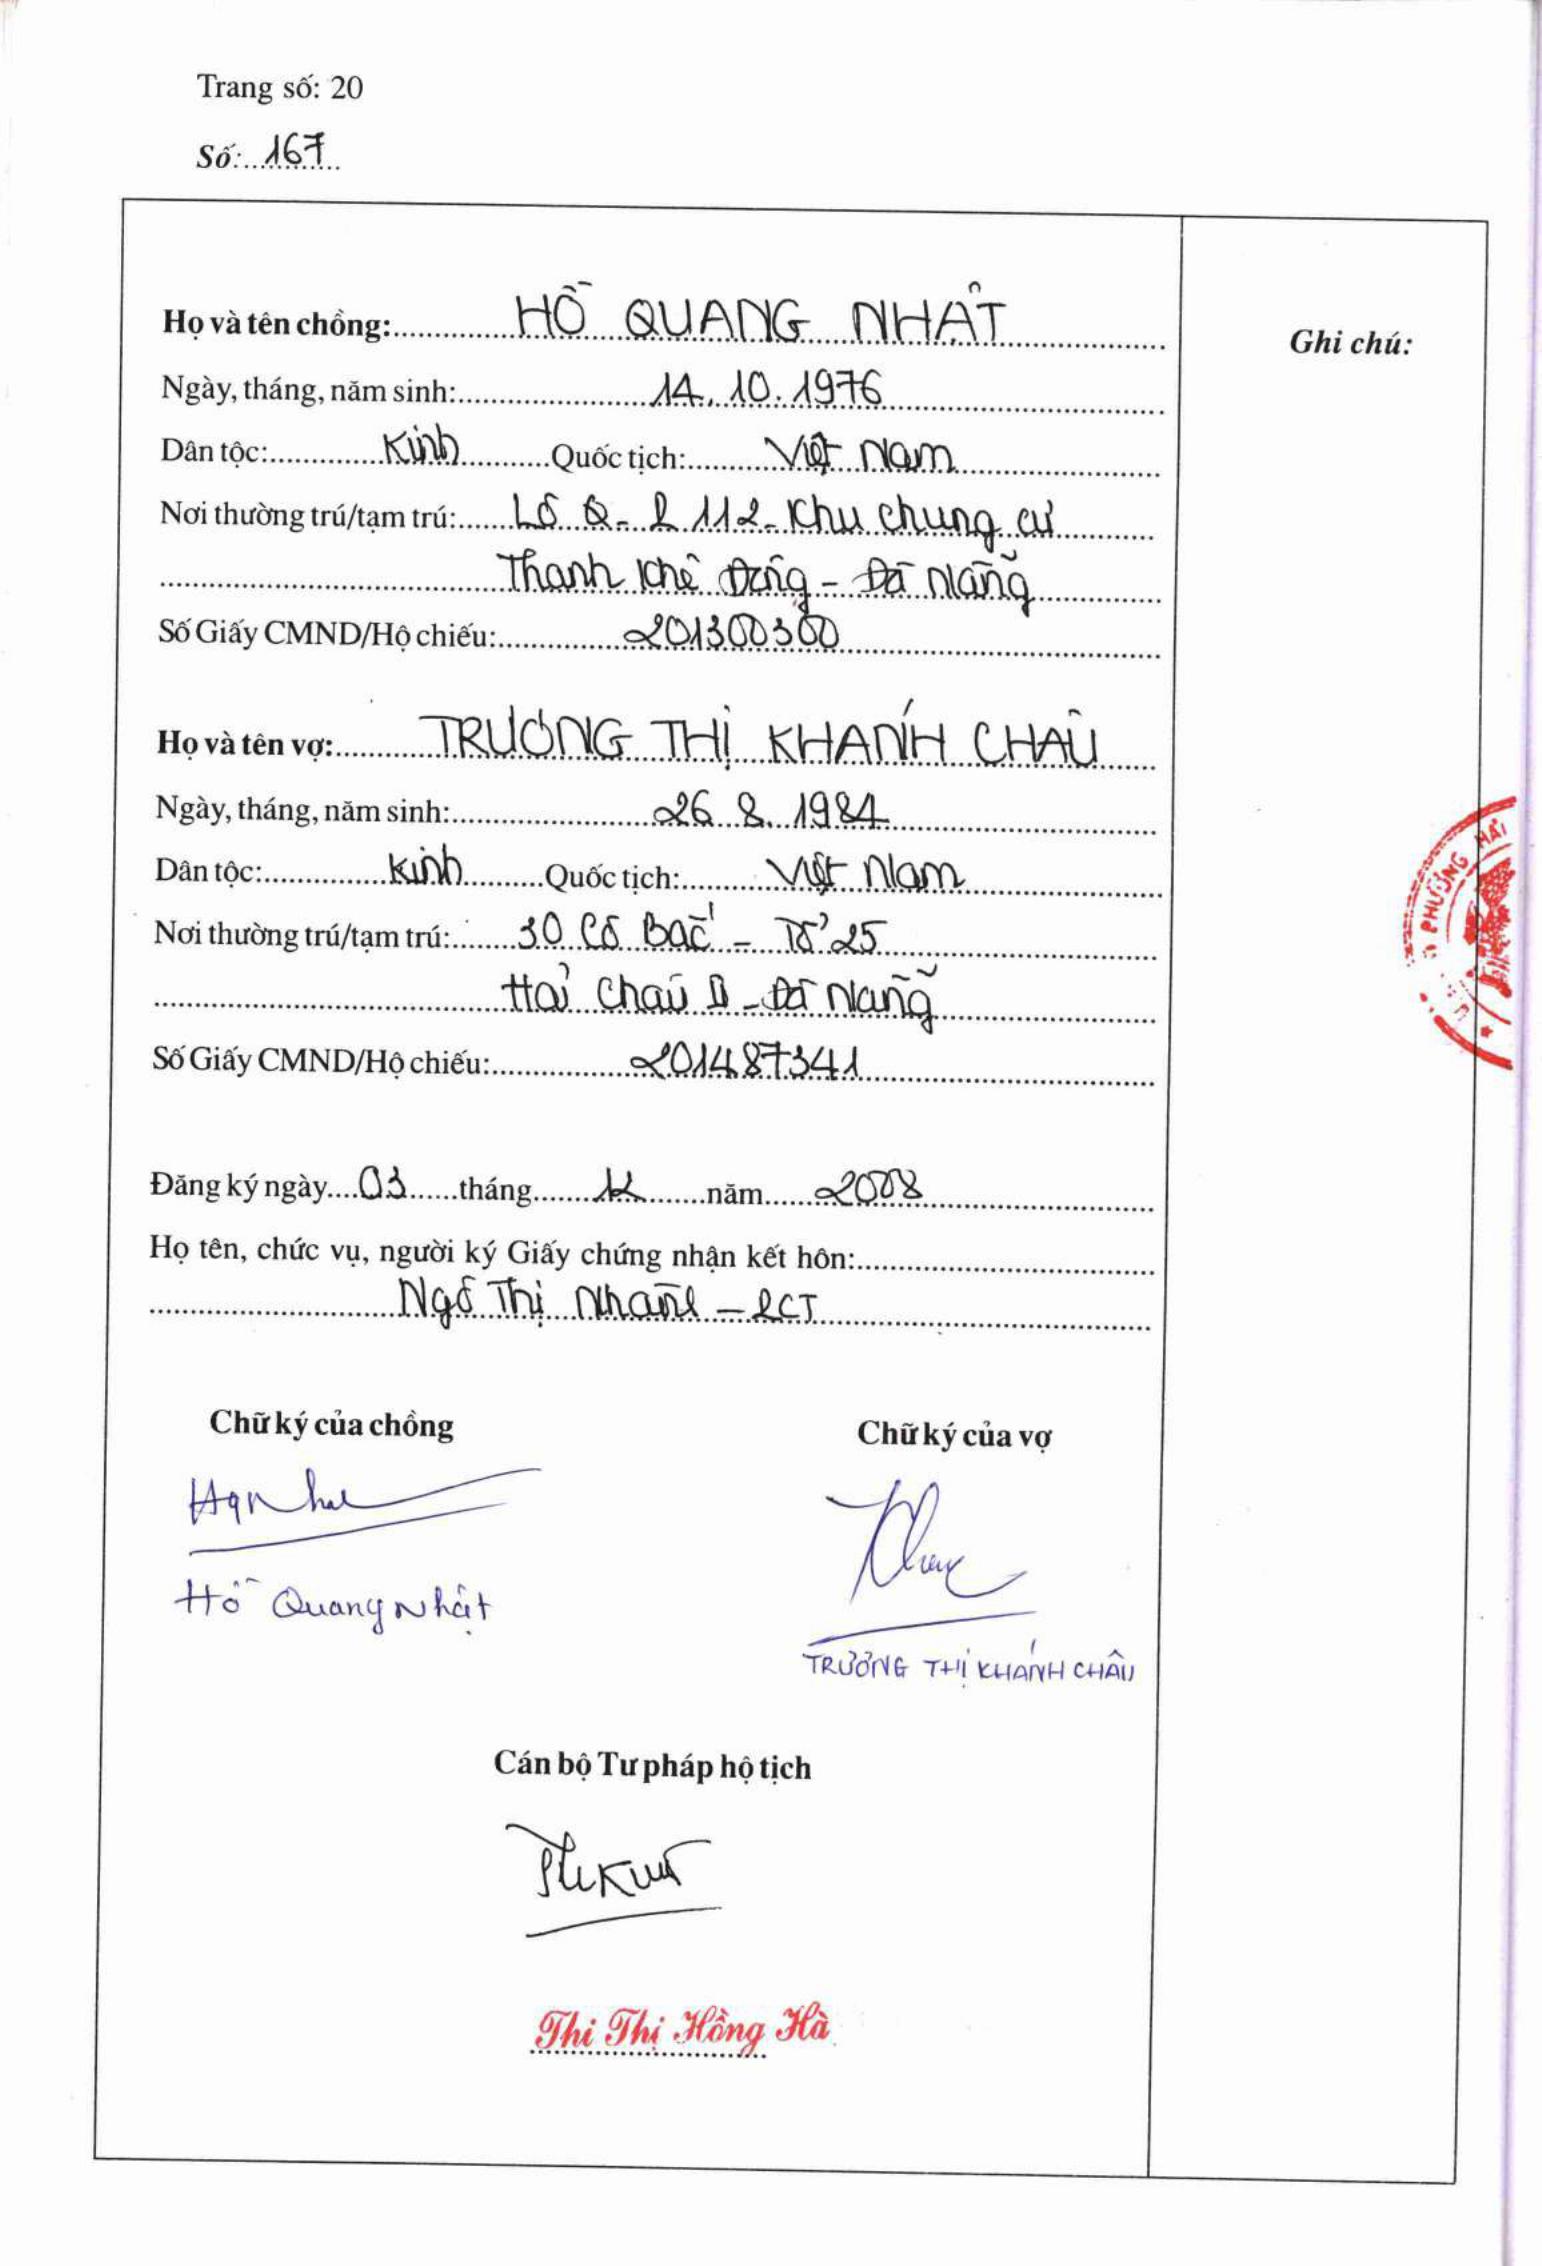 Trang số: 20
Số: 167
Họ và tên chồng: HỒ QUANG NHẬT
Ghi chú:
Ngày, tháng, năm sinh: 14. 10. 1976
Dân tộc: Kinh Quốc tịch: Việt Nam
Nơi thường trú/tạm trú: Lô Q - P 112 - Khu chung cư
Thanh Khê Đông - Đà Nẵng
Số Giấy CMND/Hộ chiếu: 201300300
Họ và tên vợ: TRƯƠNG THỊ KHÁNH CHÂU
Ngày, tháng, năm sinh: 26. 8. 1984
Dân tộc: Kinh Quốc tịch: Việt Nam
Nơi thường trú/tạm trú: 30 Cô Bắc - Tổ 25
Hải Châu II - Đà Nẵng
PHƯỜNG HẢI
Số Giấy CMND/Hộ chiếu: 201487341
Đăng ký ngày 03 tháng 12 năm 2008
Họ tên, chức vụ, người ký Giấy chứng nhận kết hôn:
Ngô Thị Nhàn - PCT
Chữ ký của chồng
Chữ ký của vợ
Hồ Quang Nhật
TRƯƠNG THỊ KHÁNH CHÂU
Cán bộ Tư pháp hộ tịch
Thi Thị Hồng Hà